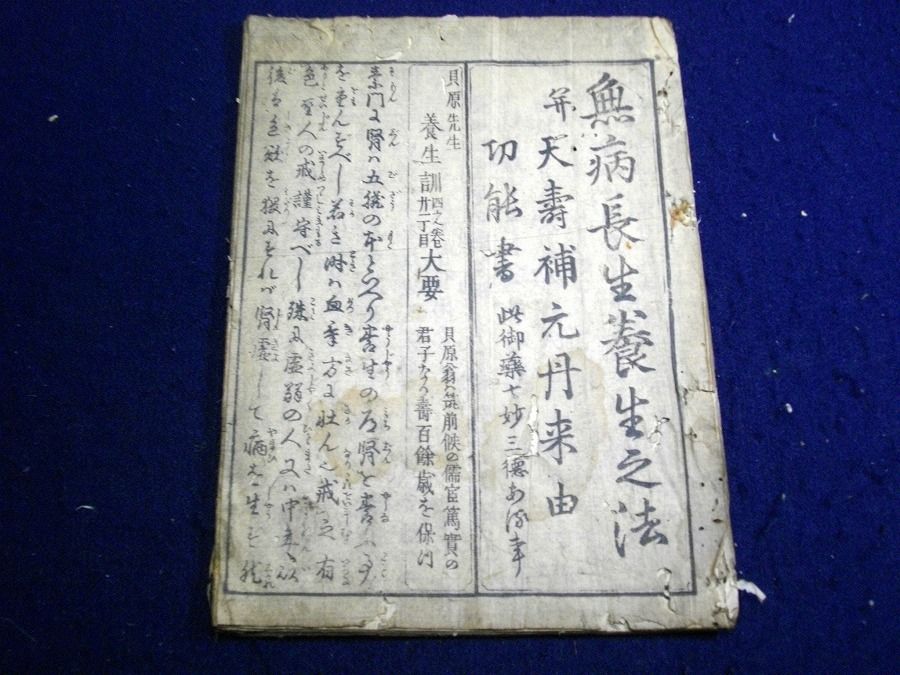 無病長生養生之法
并天壽補元丹来由
功能書 此御藥七妙三德あ
貝原先生
養生訓四之巻廿一丁目大要
貝原翁ハ筑前候の儒官篤實の
君子なり壽百餘歳を保つ
素門に腎ハ五臓の本といへり養生の道腎を養ふ
をおもんずべし若き時ハ血氣方に壮ん之戒之有
色聖人の戒謹守べし殊に虚弱の人又ハ中年以
後は色欲を
腎虚して病を生ず